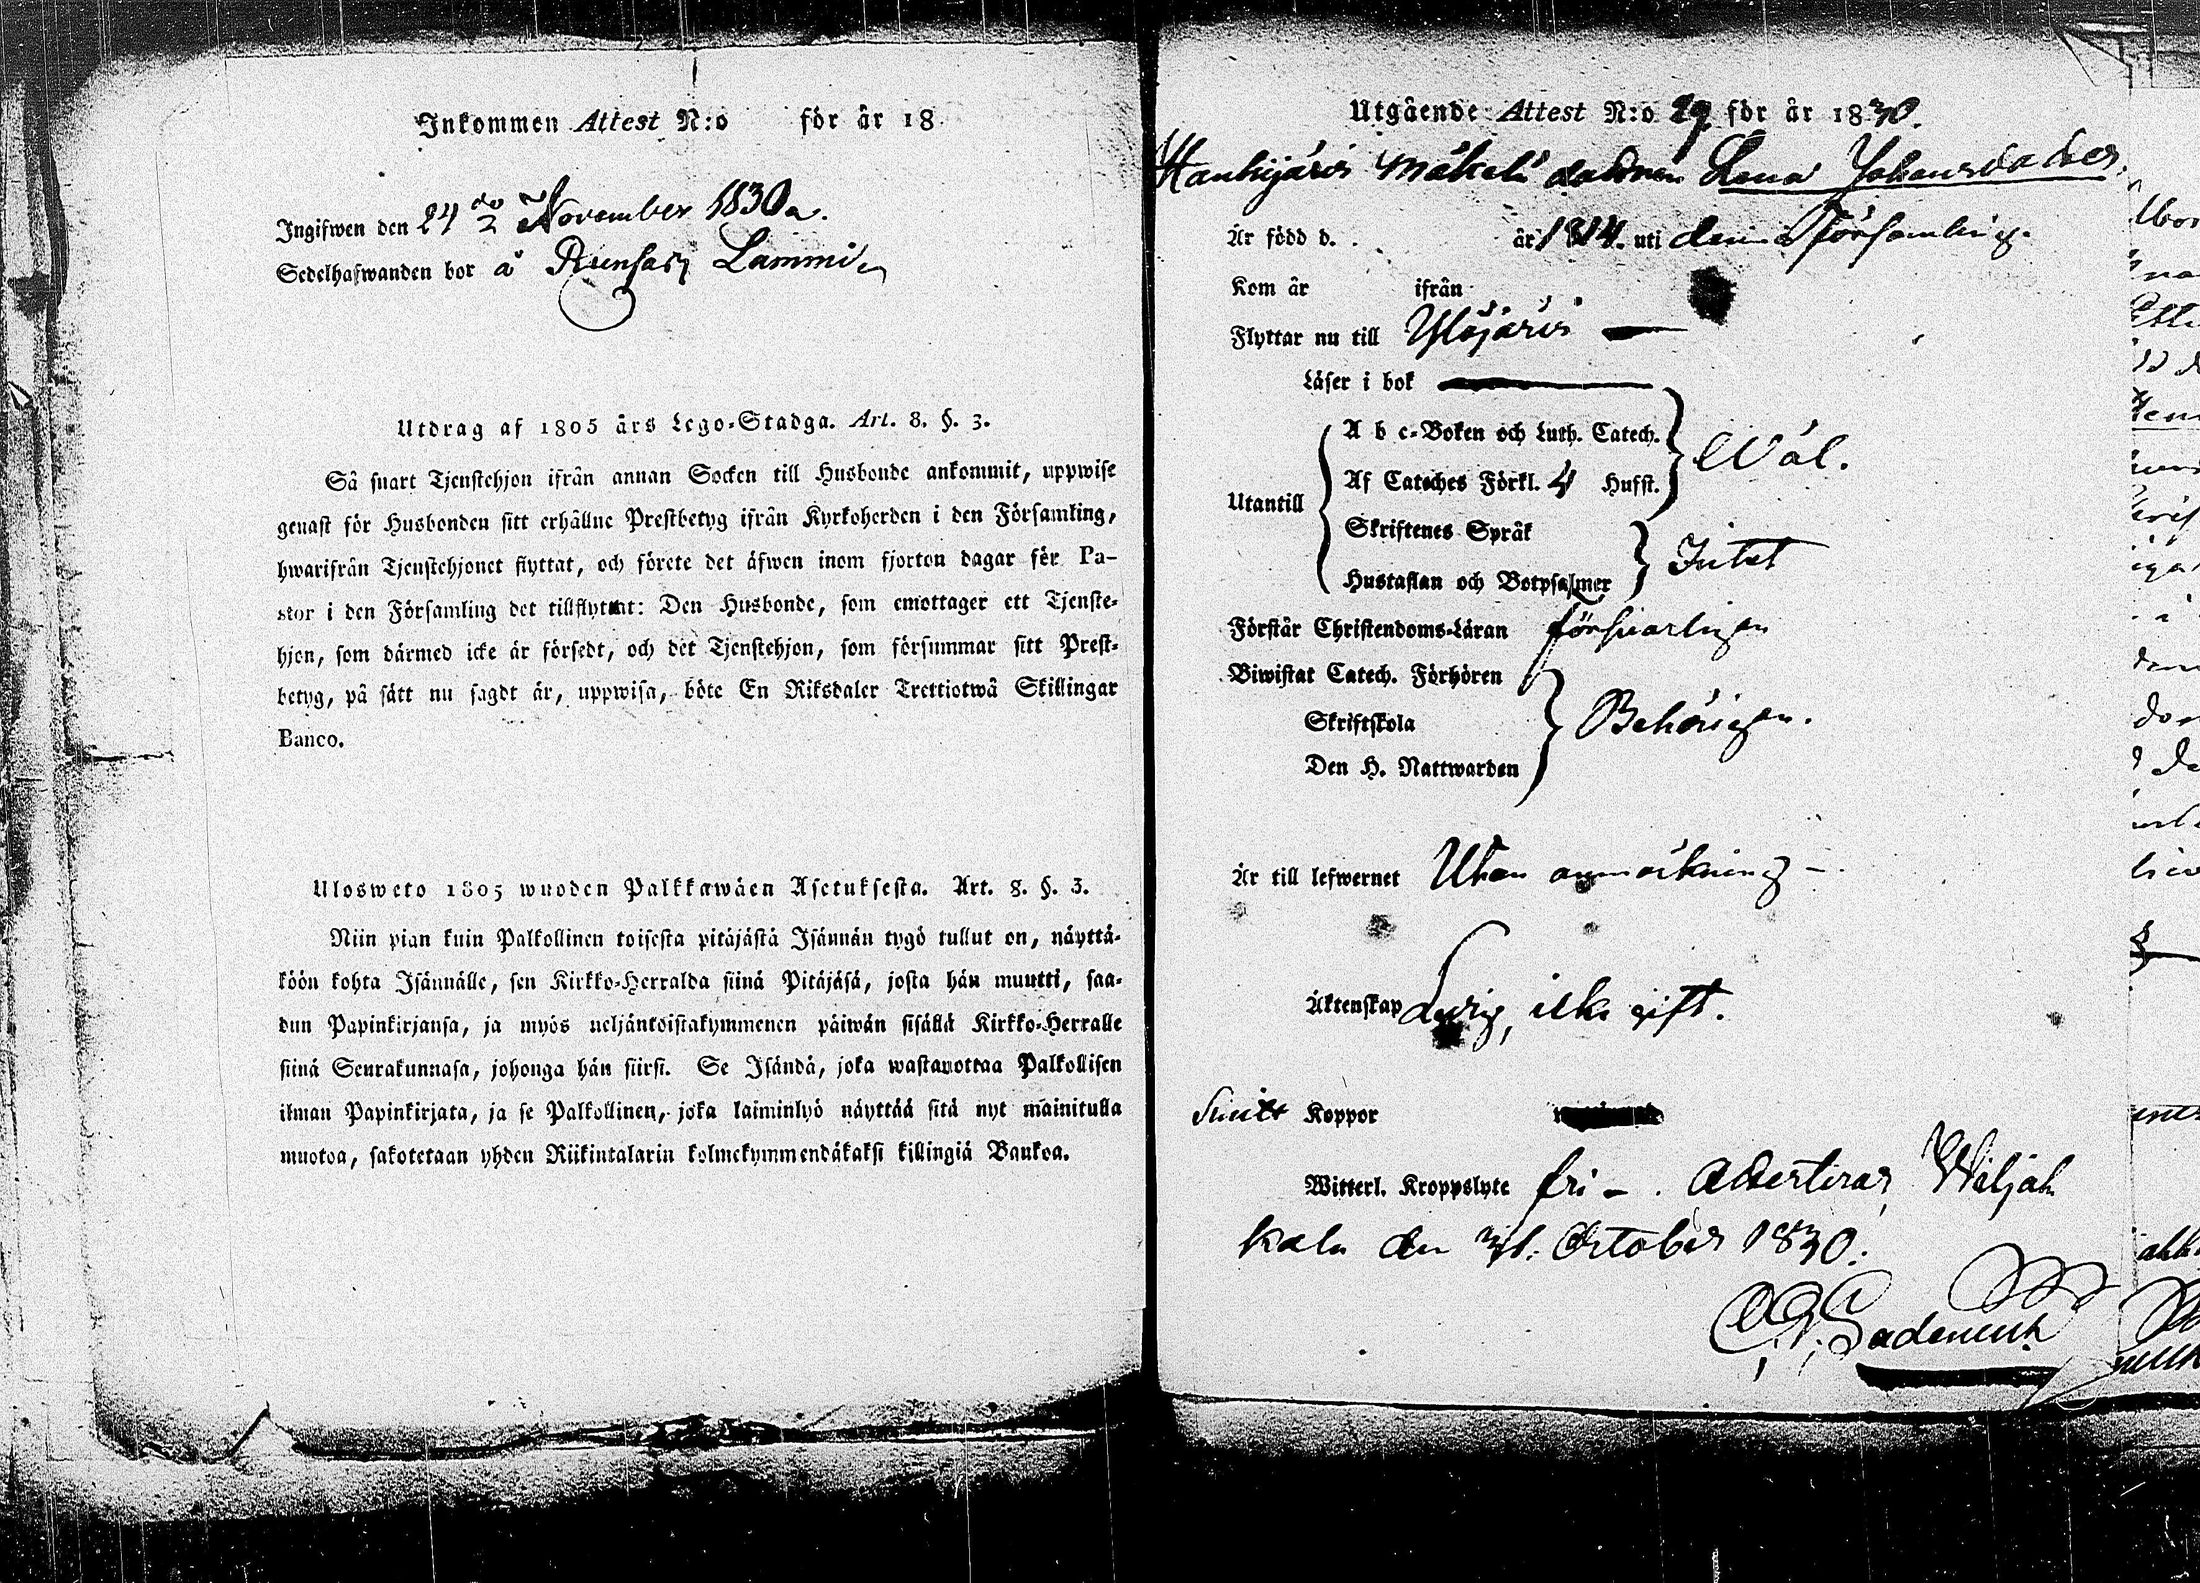 Inkommen Attest N:o för år 18
Ingifwen den 24 November 1830
Sedelhafwanden bor å Lammi
Utdrag af 1805 års Lego-Stadga. Art. 8. §. 3.
Så snart Tjenstehjon ifrån annan Socken till Husbonde ankommit, uppwise
genast för Husbonden sitt erhållne Prestbetyg ifrån Kyrkoherden i den Församling,
hwarifrån Tjenstehjonet flyttat, och förete det äfwen inom fjorton dagar för Pa-
stor i den Församling det tillflyttat: Den Husbonde, som emottager ett Tjenste-
hjon, som därmed icke är försedt, och det Tjenstehjon, som försummar sitt Prest-
betyg, på sätt nu sagdt är, uppwisa, böte En Riksdaler Trettiotwå Skillingar
Banco.
Ulosweto 1805 wuoden Palkkawäen Asetuksesta. Art. 8. §. 3.
Niin pian kuin Palkollinen toisesta pitäjästä Isännän tygö tullut on, näyttä-
köön kohta Isännälle, sen Kirkko-Herralda siinä Pitäjäsä, josta hän muutti, saa-
dun Papinkirjansa, ja myös neljäntoistakymmenen päiwän sisällä Kirkko-Herralle
siinä Seurakunnasa, johonga hän siirsi. Se Isändä, joka wastanottaa Palkollisen
ilman Papinkirjata, ja se Palkollinen, joka laiminlyö näyttää sitä nyt mainitulla
muotoa, sakotetaan yhden Riikintalarin kolmekymmendäkaksi killingiä Bankoa.
Utgående Attest N:o 29 för år 1830.
Hankijärvi Mäkelä dottren Lena Johansdotter
Är född d. år 1814. uti denna Församling.
Kom år ifrån
Flyttar nu till Ylöjärvi
Läser i bok
A b c-Boken och Luth. Catech. Wäl.
Af Cateches Förkl. 4 Hufst.
Utantill
Skriftenes Språk
Hustaflan och Botpsalmer Intet
Förstår Christendoms-Läran försvarligen
Biwistat Catech. Förhören
Skriftskola Behörigen.
Den H. Nattwarden
Är till lefwernet Utan anmärkning
Äktenskap Ledig, icke gift.
Koppor
Witterl. Kroppslyte fri. Attesterar, Wiljak
kala den 31. October 1830.